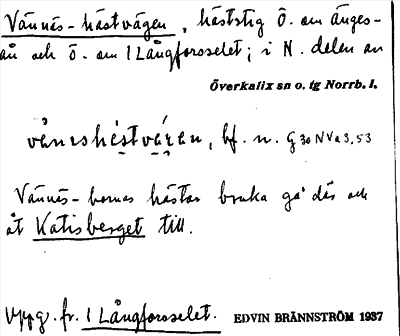 Vännäs-hästvägen, häststig Ö. om Änges-
ån och Ö. om 1 Långforsselet; i N. delen av
Överkalix sn o. tg Norrb. l.
bf. n. G 30 NV a 3, 53
Vännäs-bornas hästar bruka gå där och
åt Katisberget till.
Uppg. fr. 1 Långforsselet. EDVIN BRÄNNSTRÖM 1937